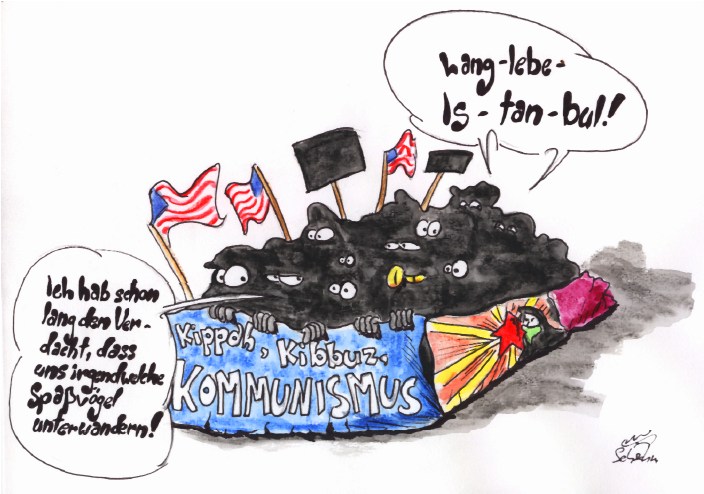 Lang-lebe-
Is-tan-bul!
Ich hab schon
lang den Ver-
dacht, dass
uns irgendwelche
Spaßvögel
unterwandern!
Kippah, Kibbuz.
KOMMUNISMUS